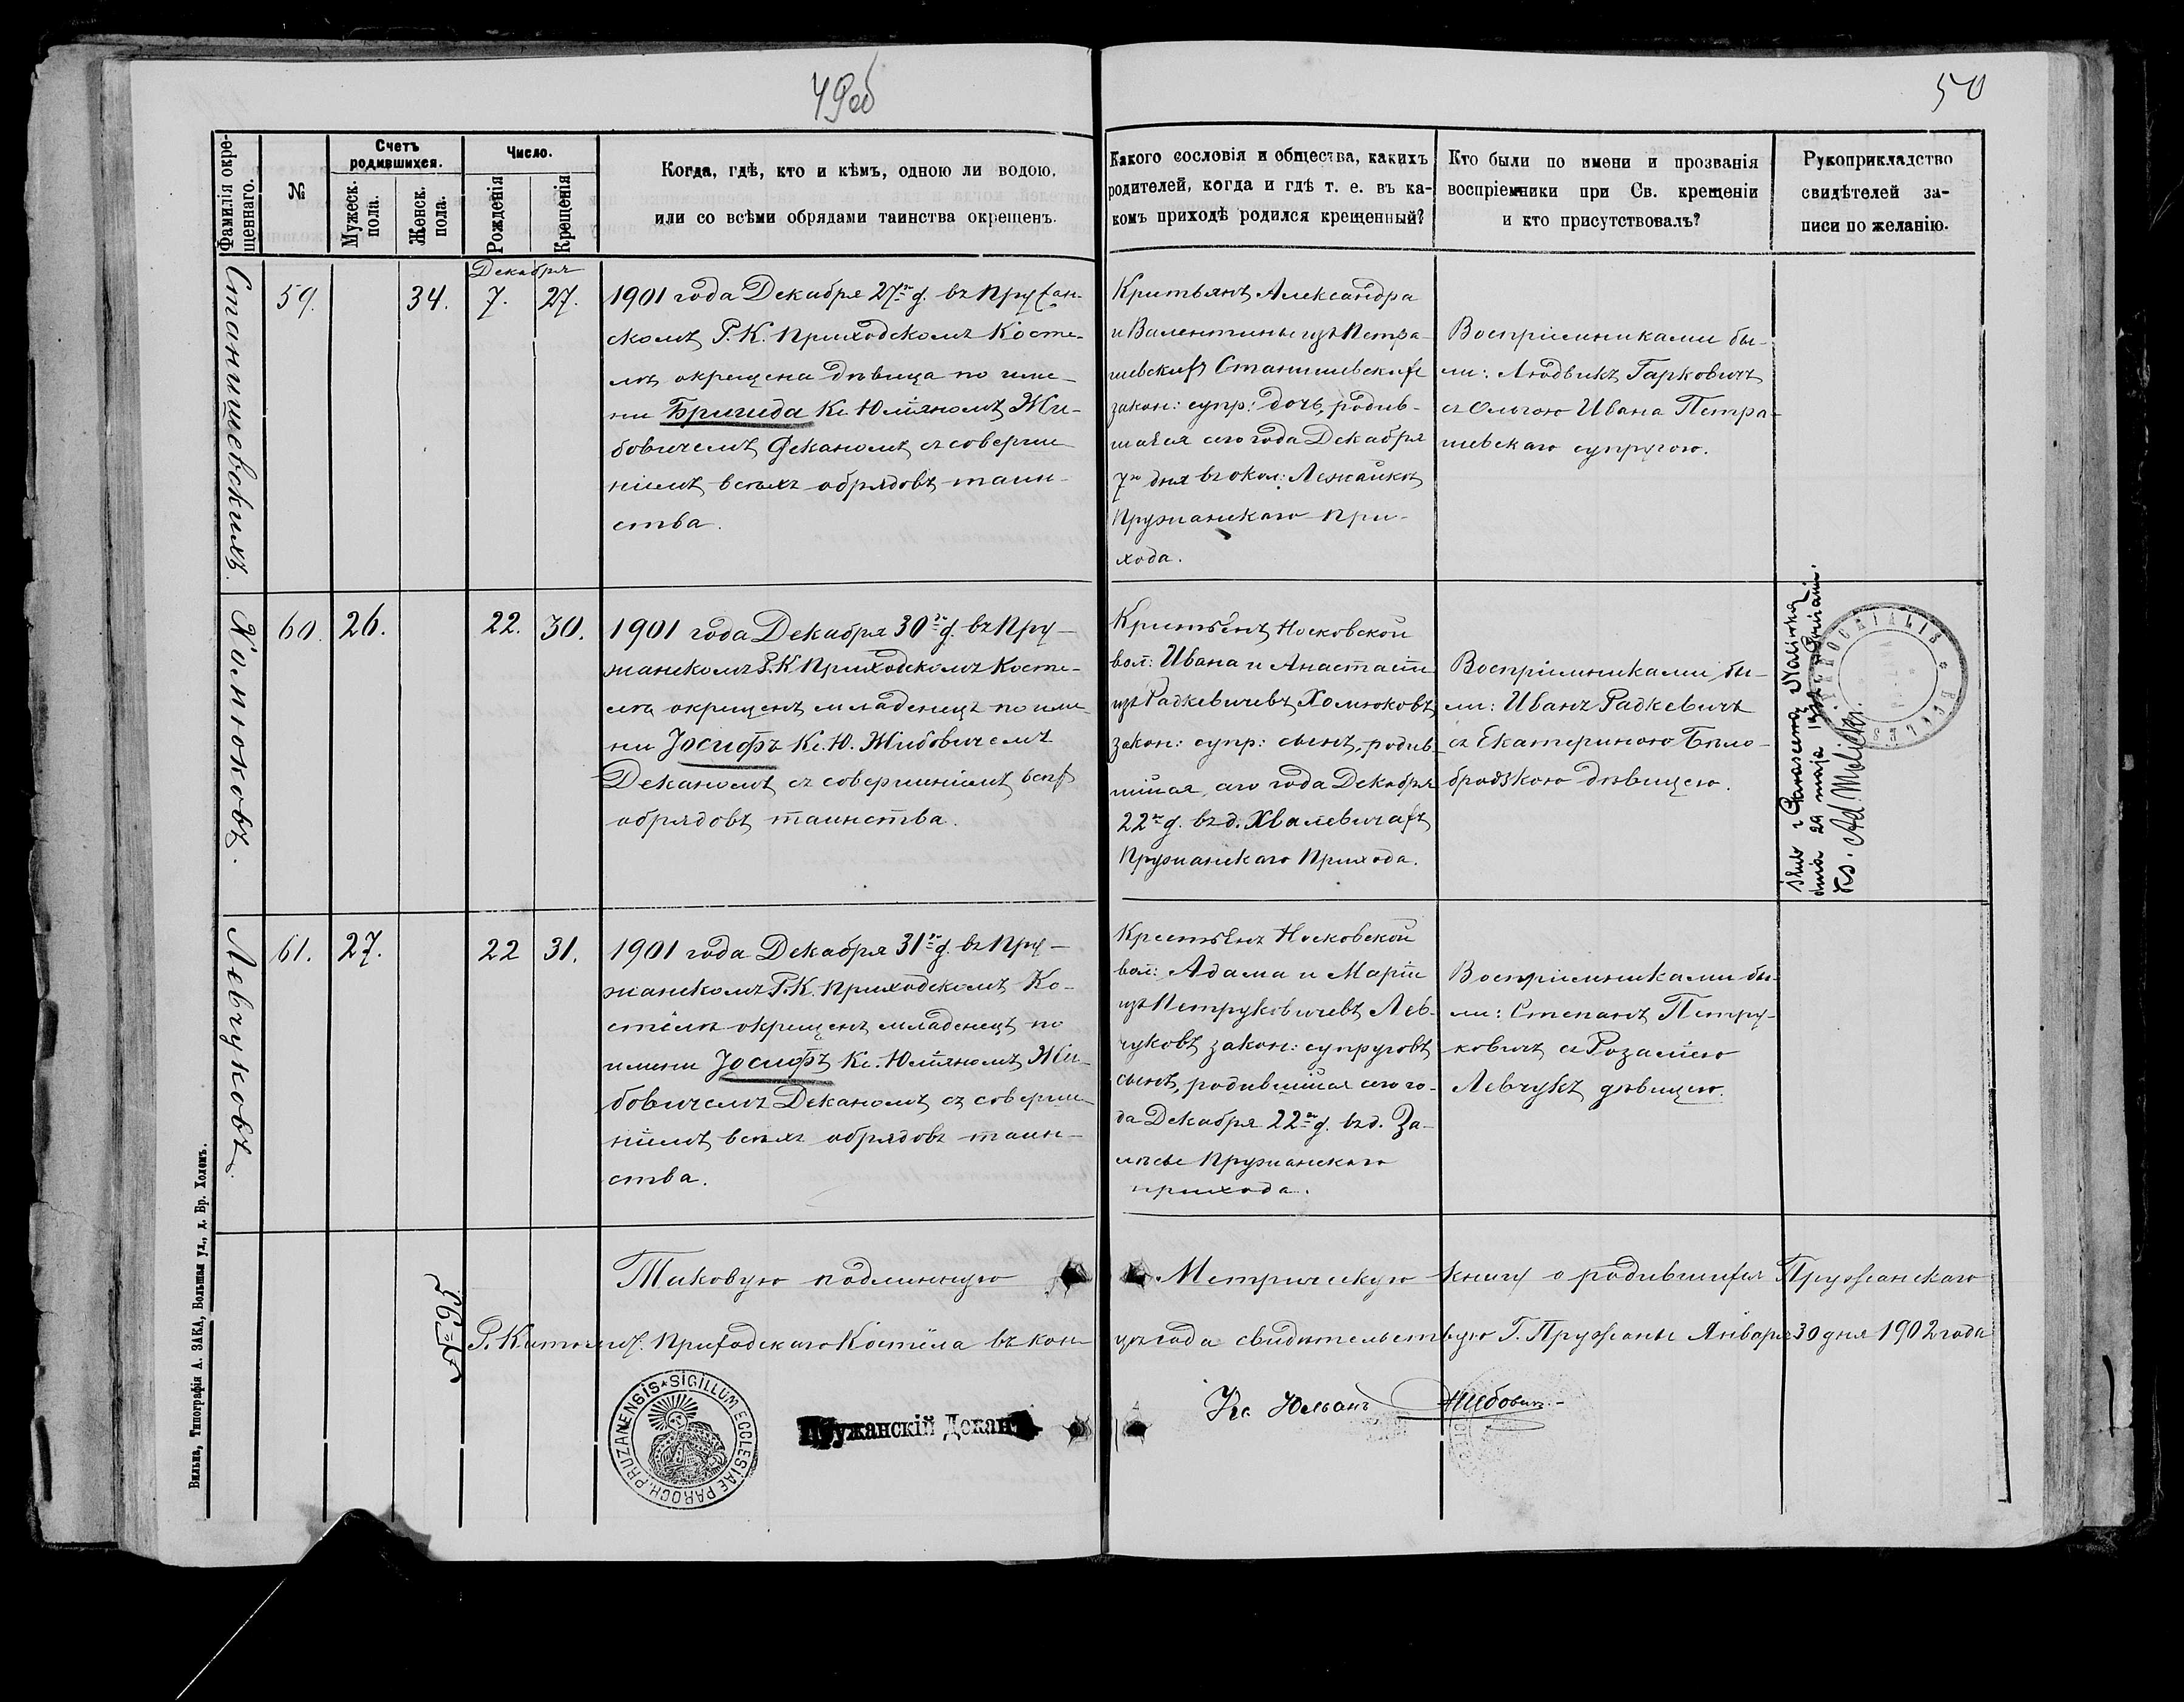 49об
50
Фамилія окре-
щеннаго.
№
Счетъ
родившихся.
Мужеск.
пола.
Женск.
пола.
Число.
Рожденія
Крещенія
Когда, гдѣ, кто и кѣмъ, одною ли водою,
или со всѣми обрядами таинства окрещенъ.
Какого сословія и общества, какихъ
родителей, когда и гдѣ т. е. въ ка-
комъ приходѣ родился крещенный?
Кто были по имени и прозванія
воспріемники при Св. крещеніи
и кто присутствовалъ?
Рукоприкладство
свидѣтелей за-
писи по желанію.
Станишевскихъ.
59.
34.
Декабря
7.
27.
1901 года Декабря 27го д. въ Пружан-
скомъ Р. К. Приходскомъ Косте-
лѣ окрещена дѣвица по име-
ни Бригида Кс. Юліяномъ Жи-
бовичемъ Деканомъ съ соверше-
ніемъ всѣхъ обрядовъ таин-
ства.
Крестьянъ Александра
и Валентины изъ Петра-
шевскихъ Станишевскихъ
закон: супр: дочь, родив-
шаяся сего года Декабря
7го дня въ окол: Лежайкѣ
Пружанскаго При-
хода.
Воспріемниками бы-
ли: Людвикъ Гарковичъ
съ Ольгою Ивана Петра-
шевскаго супругою.
Хомюковъ.
60.
26.
22.
30.
1901 года Декабря 30го д. въ Пру-
жанскомъ Р.К Приходскомъ Косте-
лѣ окрещенъ младенецъ по име-
ни Іосифъ Кс. Ю. Жибовичемъ
Деканомъ съ совершеніемъ всѣхъ
обрядовъ таинства.
Крестьянъ Носковской
вол: Ивана и Анастасіи
изъ Радкевичевъ Хомюковъ
закон: супр: сынъ, родив-
шійся сего года Декабря
22го д. въ д. Хвалевичахъ
Пружанскаго Прихода.
Воспріемниками бы-
ли: Иванъ Радкевичъ
съ Екатериною Бѣло-
бродзкою дѣвицею.
dnia 29 maja
Ks. Ad.
Левчуковъ.
61.
27.
22
31.
1901 года Декабря 31го д. въ Пру-
жанскомъ Р.К. Приходскомъ Ко-
стёлѣ окрещенъ младенецъ по
имени Іосифъ Кс. Юліяномъ Жи-
бовичемъ Деканомъ съ соверше-
ніемъ всѣхъ обрядовъ таин-
ства.
Крестьянъ Носковской
вол: Адама и Маріи
изъ Петруковичевъ Лев-
чуковъ закон: супруговъ
сынъ, родившійся сего го-
да Декабря 22го д. въ д. За-
лѣсье Пружанскаго
прихода.
Воспріемниками бы-
ли: Степанъ Петру-
ковичъ съ Розаліею
Левчукъ дѣвицею.
№ 95
Таковую подлинную Метрическую книгу о родившихся Пружанскаго
Р. Католич. Приходскаго Костёла въ кон-
цѣ года свидѣтельствую Г. Пружаны Января 30 дня 1902 года
SIGILLUM ECCLESIAE PAROCH. PRUZANENSIS
Пружанскій Деканъ
Кс. Юльянъ Жибовичъ
Вильна, Типографія А. ЗАКА, Большая ул., д. Бр. Холемъ.